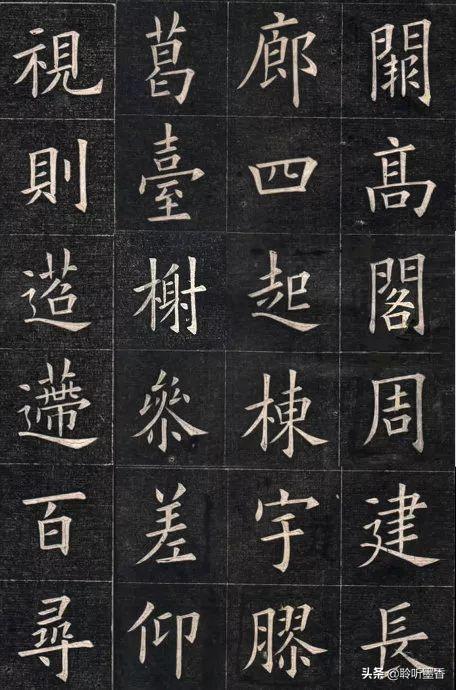 闕高閣周建長
廊四起棟宇膠
葛臺榭參差仰
視則迢遰百尋
头条 @聆听墨香